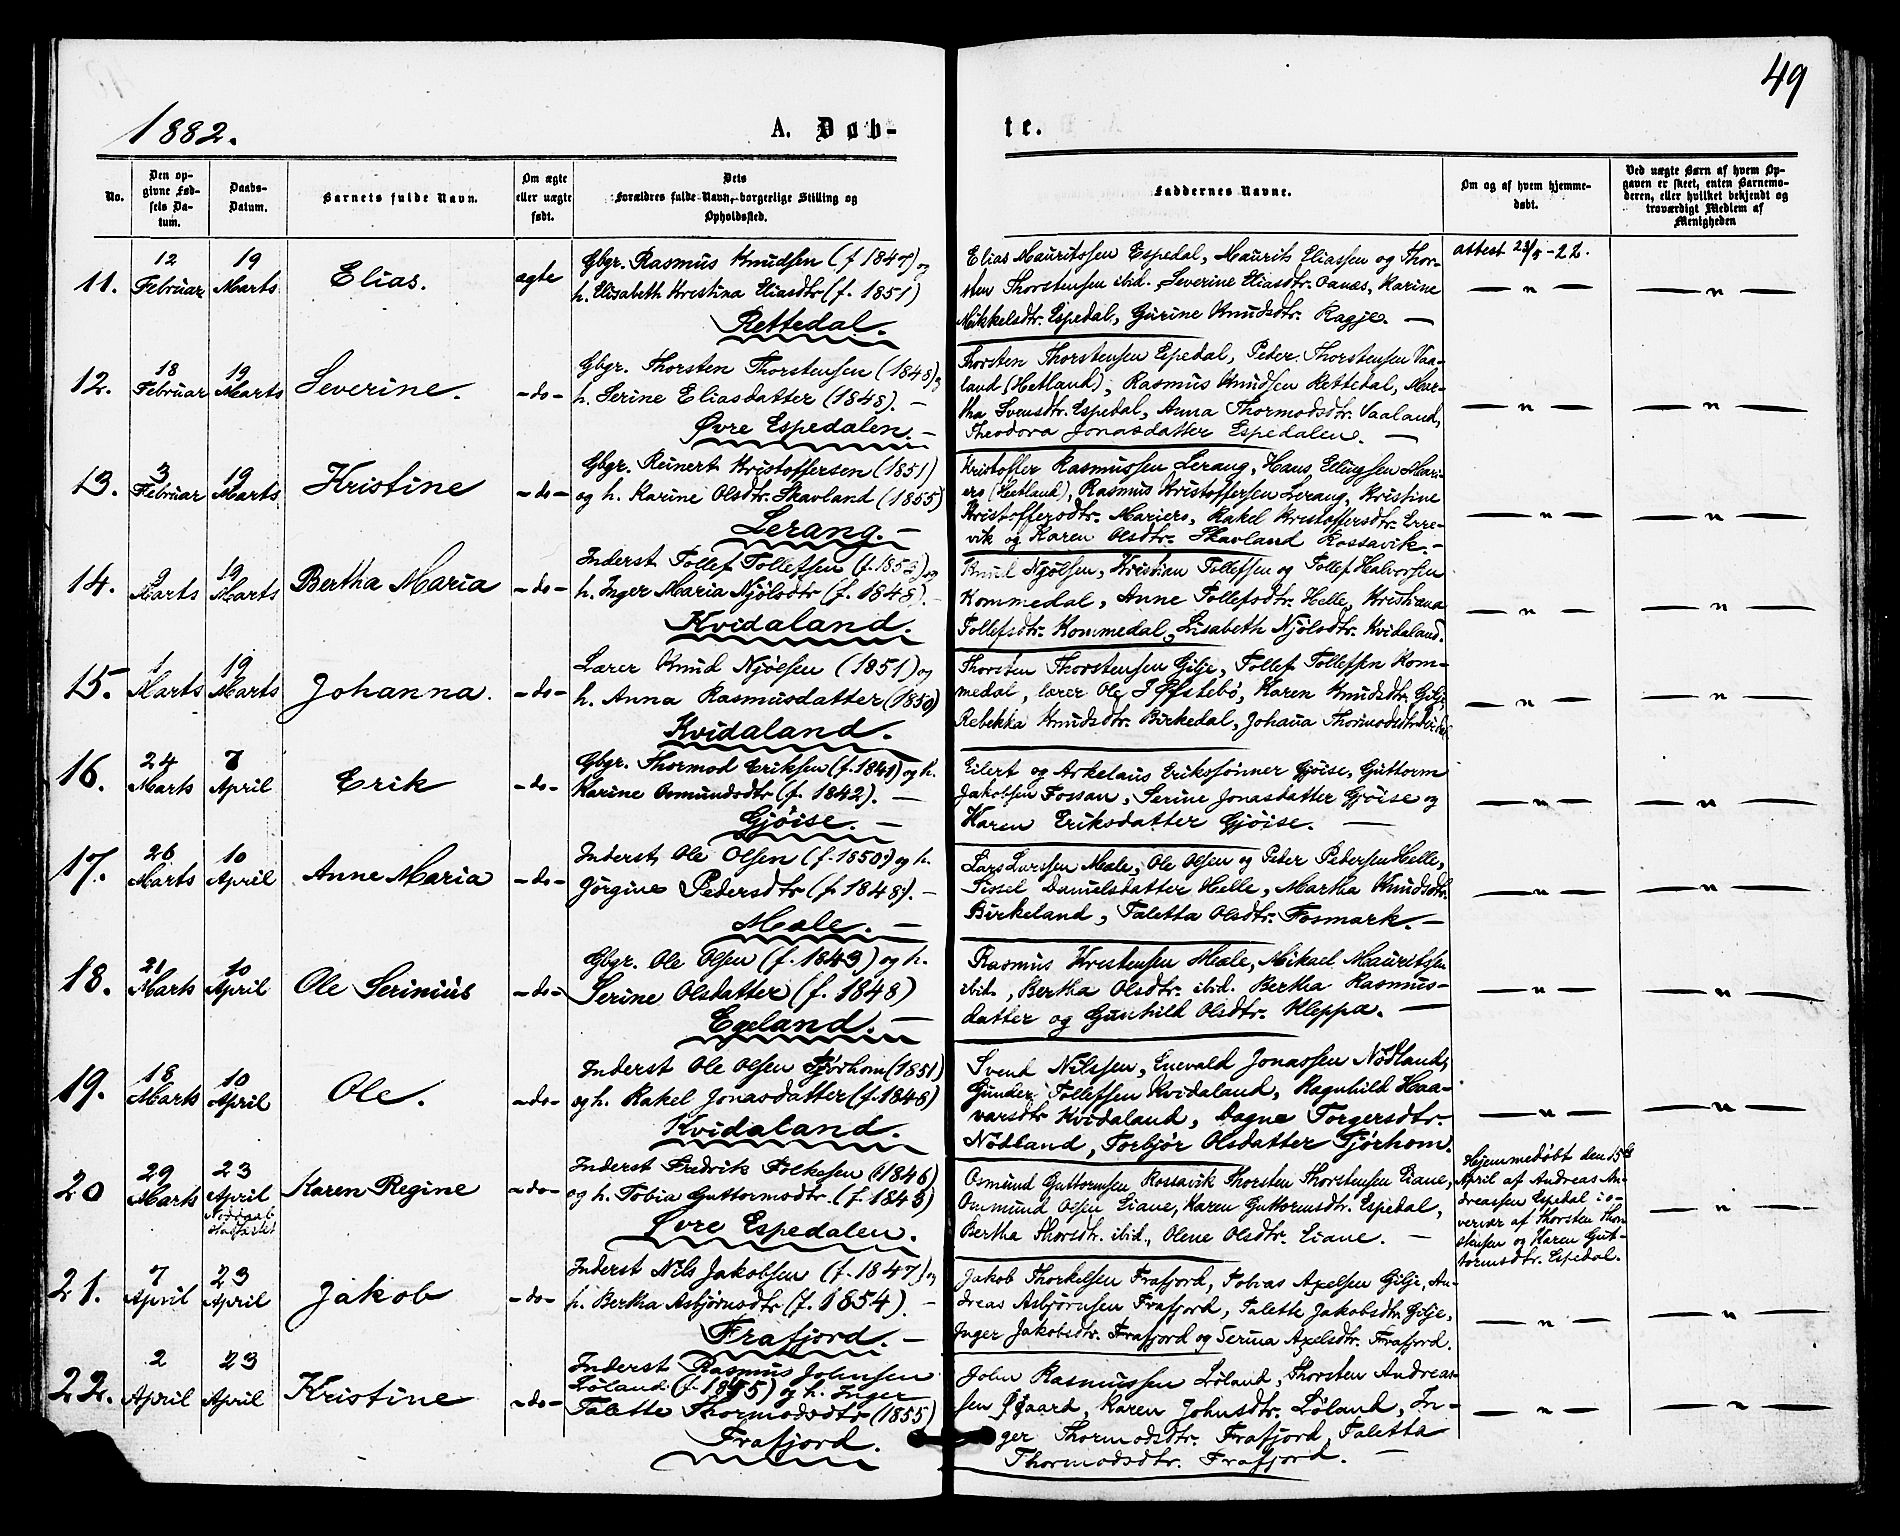 49
1882.
A. Døb-
te.
No.
Den op-
givne Fød-
sels Da-
tum.
Daabs-
Datum.
Barnets fulde Navn.
Om ægte
eller uægte
født.
Dets
Forældres fulde Navn, borgerlige Stilling og
Opholdssted.
Faddernes Navne.
Om og af hvem hjemme-
døbt.
Ved uægte Børn af hvem Op-
gaven er skeet, enten Barnemo-
deren, eller hvilket bekjendt og
troværdigt Medlem af
Menigheden
11.
12
Februar
19
Marts
Elias.
ægte
Gbgr. Rasmus Knudsen (f. 1847) og
h. Elisabeth Krestina Eliasdtr (f. 1851)
Rettedal.
Elias Mauritssen Espedal, Maurits Eliassen og Thor-
sten Thorstensen ibid., Severine Eliasdtr. Oanæs, Karine
Mikkelsdtr. Espedal, Gurine Knudsdtr. Ragje. —
attest 23/5 - 22.
— " —
— " —
12.
18
Februar
19
Marts
Severine.
- do -
Gbgr. Thorsten Thorstensen (1848) og
h. Serine Eliasdatter (1848). —
Øvre Espedalen. —
Thorsten Thorstensen Espedal, Peder Thorstensen Vaa-
land (Hetland), Rasmus Knudsen Rettedal, Mar-
tha Svensdtr. Espedal, Anna Thormodsdtr. Vaaland,
Theodora Jonasdatter Espedalen. —
— " —
— " —
13.
3
Februar
19
Marts
Kristine
- do -
Gbgr. Reinert Kristoffersen (1851)
og h. Karine Olsdtr. Skavland (1855)
Lerang. —
Kristoffer Rasmussen Lerang, Hans Ellingsen Mari-
ero (Hetland), Rasmus Kristoffersen Lerang, Kristine
Kristoffersdtr. Mariero, Rakel Kristoffersdtr. Erre-
vik og Karen Olsdtr. Skavland Rossavik. —
— " —
— " —
14.
9
Marts
19
Marts
Bertha Maria
- do -
Inderst Tollef Tollefsen (f. 1853) og
h. Inger Maria Njølsdtr (f. 1848). —
Kvidaland.
Knud Njølsen, Kristian Tollefsen og Tollef Halvorsen
Kommedal, Anne Tollefsdtr. Helle, Kristiana
Tollefsdtr. Kommedal, Lisabeth Njølsdtr. Kvidaland.
— " —
— " —
15.
1
Marts
19
Marts
Johanna.
- do -
Lærer Knud Njølsen (1851) og
h. Anna Rasmusdatter (1850)
Kvidaland.
Thorsten Thorstensen Gilje, Tollef Tollefsen Kom-
medal, lærer Ole J Øfstebø, Karen Knudsdtr. Gilje
Rebekka Knudsdtr. Birkedal, Johana Thormodsdtr.
— " —
— " —
16.
24
Marts
7
April
Erik
- do -
Gbgr. Thormod Eriksen (f. 1841) og h.
Karine Osmundsdtr (f. 1842). —
Gjøise. —
Eilert og Arkelaus Erikssønner Gjøise, Guttorm
Jakobsen Fossan, Serine Jonasdatter Gjøise og
Karen Eriksdatter Gjøise. —
— " —
— " —
17.
26
Marts
10
April
Anne Maria
- do -
Inderst, Ole Olsen (f. 1850) og h.
Jørgine Pedersdtr (f. 1848). —
Mæle. —
Lars Larssen Mæle, Ole Olsen og Peder Pedersen Helle,
Sissel Danielsdatter Helle, Martha Knudsdtr.
Birkeland, Taletta Olsdtr. Fosmark. —
— " —
— " —
18.
21
Marts
10
April
Ole Serinius
- do -
Gbgr. Ole Olsen (f. 1843) og h.
Serine Olsdatter (f. 1848)
Egeland. —
Rasmus Krestensen Mæle, Mikael Mauritssen
ibid., Bertha Olsdtr. ibid. Bertha Rasmus-
datter og Gunhild Olsdtr. Kleppa. —
— " —
— " —
19.
18
Marts
10
April
Ole.
- do -
Inderst Ole Olsen Tjørhom (1851)
og h. Rakel Jonasdatter (f. 1848)
Kvidaland.
Svend Nilssen, Enevald Jonassen Nødland,
Gunder Tollefsen Kvidaland, Ragnhild Haa-
varsdtr Kvidaland, Dagne Torgersdtr.
Nødland, Torbjør Olsdatter Tjørhom.
— " —
— " —
20
29
Marts
23
April
Nøddaab
stadfæstet
Karen Regine
- do -
Inderst Fredrik Folkesen (1846)
og h. Tobia Guttormsdtr. (f. 1843)
Øvre Espedalen.
Osmund Guttormsen Rossavik Thorsten Thorstensen Liane,
Ommund Olsen Liane, Karen Guttormsdtr. Espedal,
Bertha Thorsdtr. ibid., Olene Olsdtr. Liane. —
Hjemmedøbt den 15de
April af Andreas An-
dreassen Espedal i o-
vervær af Thorsten Thor-
stensen og Karen Gut-
tormsdtr. Espedal.
— " —
21.
7
April
23
April
Jakob
- do -
Inderst Nils Jakobsen (f. 1847) og
h. Bertha Asbjørnsdtr (f. 1854). —
Frafjord. —
Jakob Thorkelsen Frafjord, Tobias Axelsen Gilje, An-
dreas Asbjørnsen Frafjord, Talette Jakobsdtr. Gilje,
Inger Jakobsdtr. Frafjord og Serina Axelsdtr. Frafjord.
— " —
— " —
22.
2
April
23
April
Kristine
- do -
Inderst Rasmus Johnsen
Løland (f. 1855) og h. Inger
Talette Thormodsdtr (1855)
Frafjord.
John Rasmussen Løland, Thorsten Andreas-
sen Øgaard, Karen Johnsdtr. Løland, In-
ger Thormodsdtr. Frafjord, Taletta
Thormodsdtr. Frafjord. —
— " —
— " —